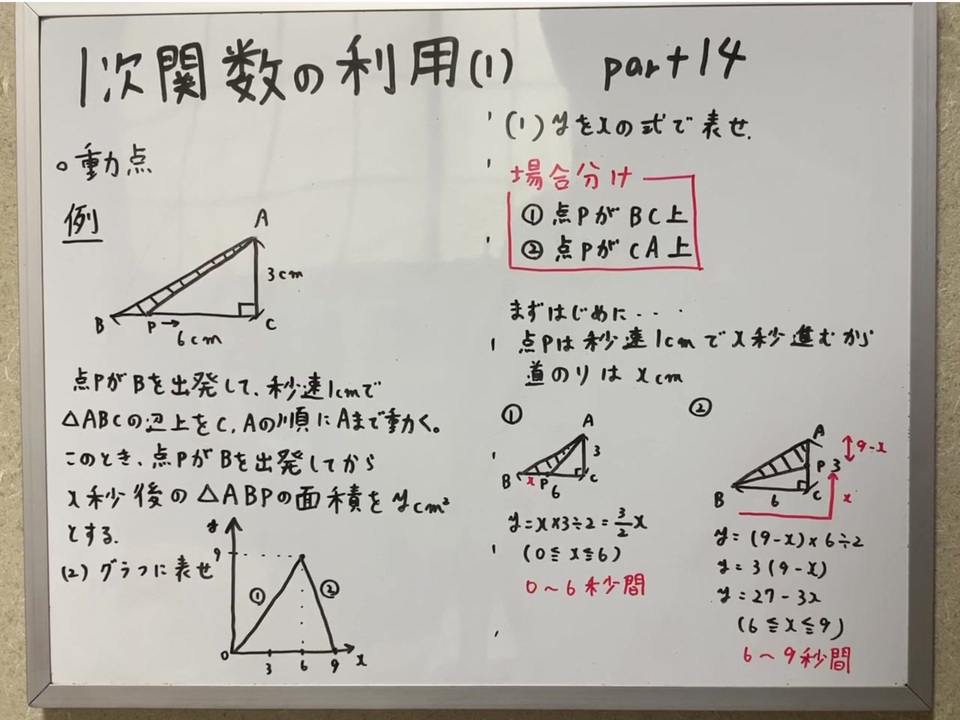 1次関数の利用(1) part14
○動点
例
A
3cm
B P→ C
6cm
点PがBを出発して、秒速1cmで
△ABCの辺上をC,Aの順にAまで動く。
このとき、点PがBを出発してから
x秒後の△ABPの面積をycm²
とする.
(2) グラフに表せ
y
9
① ②
0 3 6 9 x
(1) yをxの式で表せ.
場合分け
① 点PがBC上
② 点PがCA上
まずはじめに・・・
点Pは秒速1cmでx秒進むから
道のりはxcm
①
A
3
B x P C
6
y=x×3÷2=3/2x
(0≦x≦6)
0〜6秒間
②
A
9-x
P 3
B 6 C x
y=(9-x)×6÷2
y=3(9-x)
y=27-3x
(6≦x≦9)
6〜9秒間